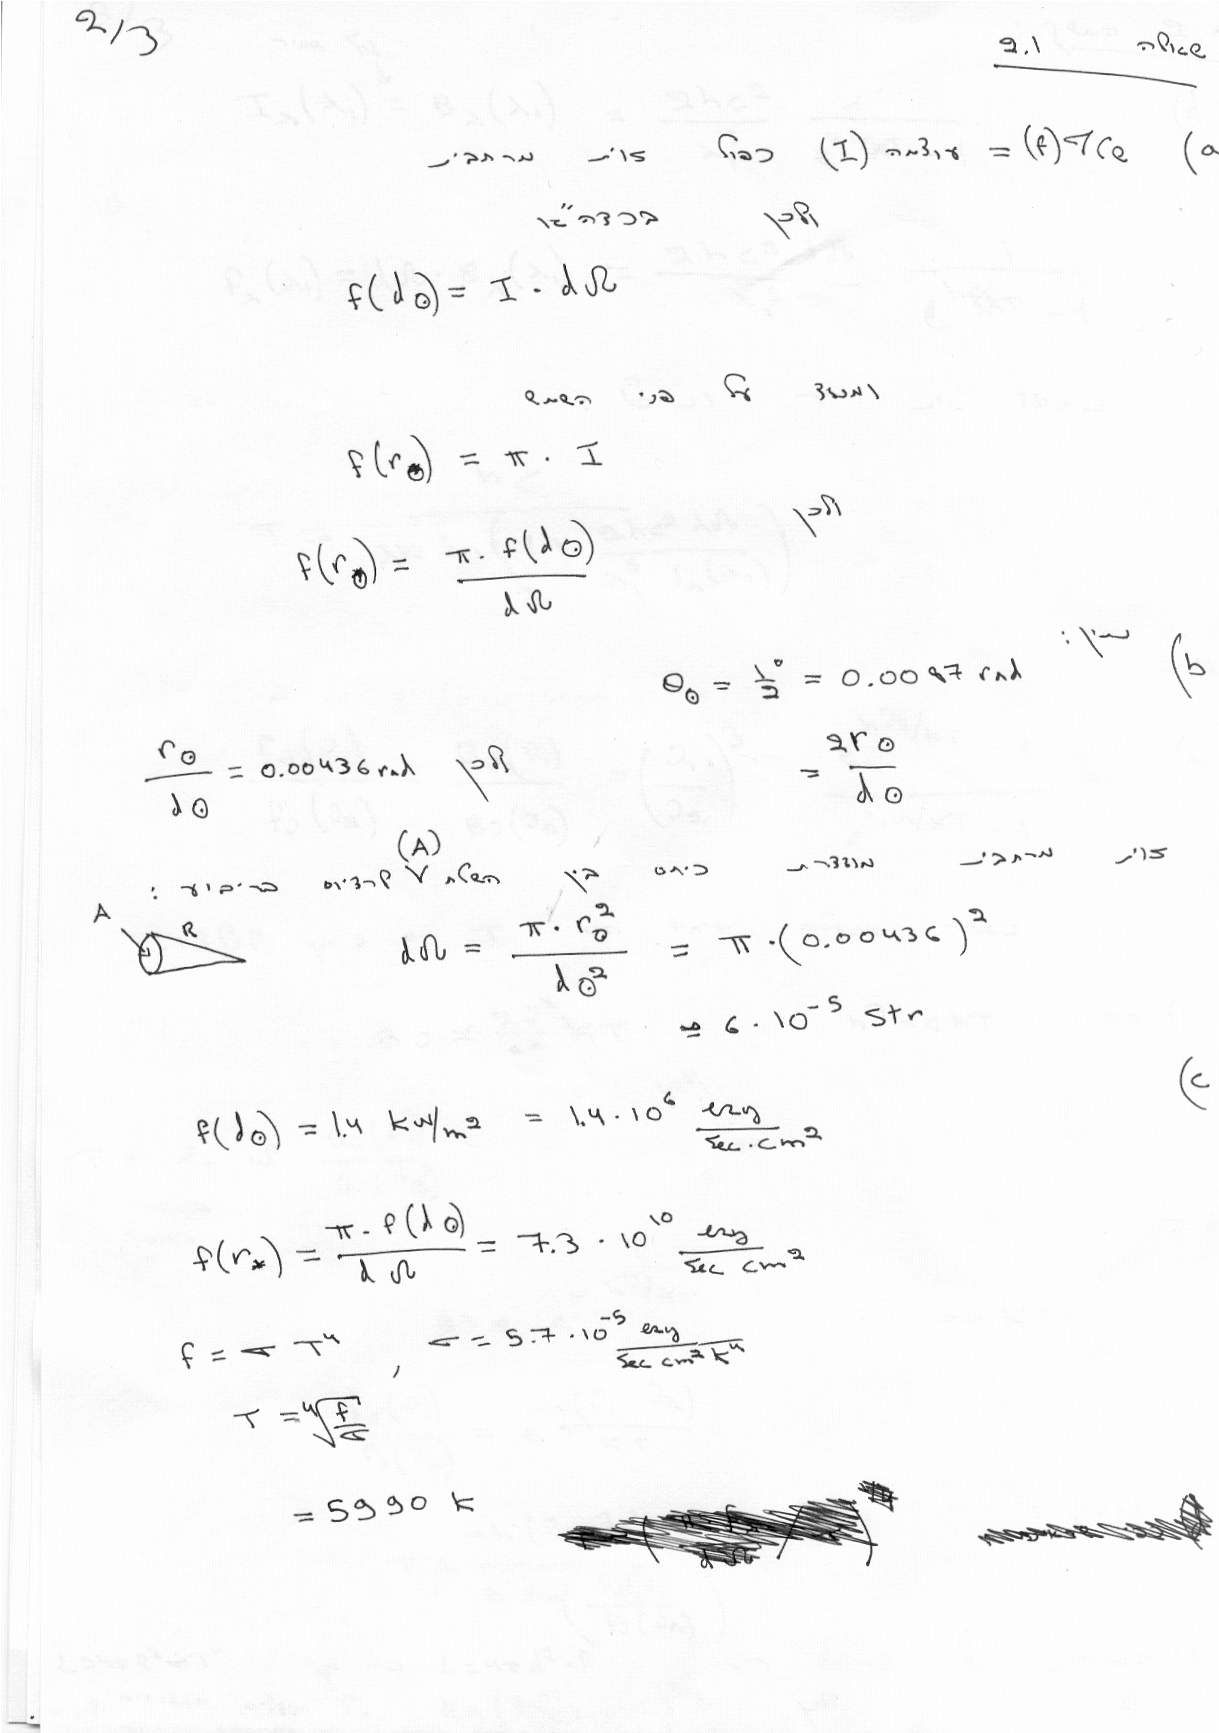 2/3
שאלה 2.1
a) שטף (f) = עוצמה (I) כפול זוית מרחבית
ולכן בכדה"א
f(d⊙) = I · dΩ
ומצד על פני השמש
f(r⊙) = π · I
ולכן
f(r⊙) = π · f(d⊙) / dΩ
b) נתון:
θ⊙ = 1/2° = 0.0087 rad
= 2r⊙ / d⊙ ולכן r⊙ / d⊙ = 0.00436 rad
זוית מרחבית מוגדרת כיחס בין השטח (A) לרדיוס בריבוע :
A R
dΩ = π · r⊙² / d⊙² = π · (0.00436)²
= 6 · 10⁻⁵ Str
c)
f(d⊙) = 1.4 kW/m² = 1.4 · 10⁶ erg / sec · cm²
f(r*) = π · f(d⊙) / dΩ = 7.3 · 10¹⁰ erg / sec cm²
f = σ T⁴ , σ = 5.7 · 10⁻⁵ erg / sec cm² K⁴
T = ⁴√(f/σ)
= 5990 K